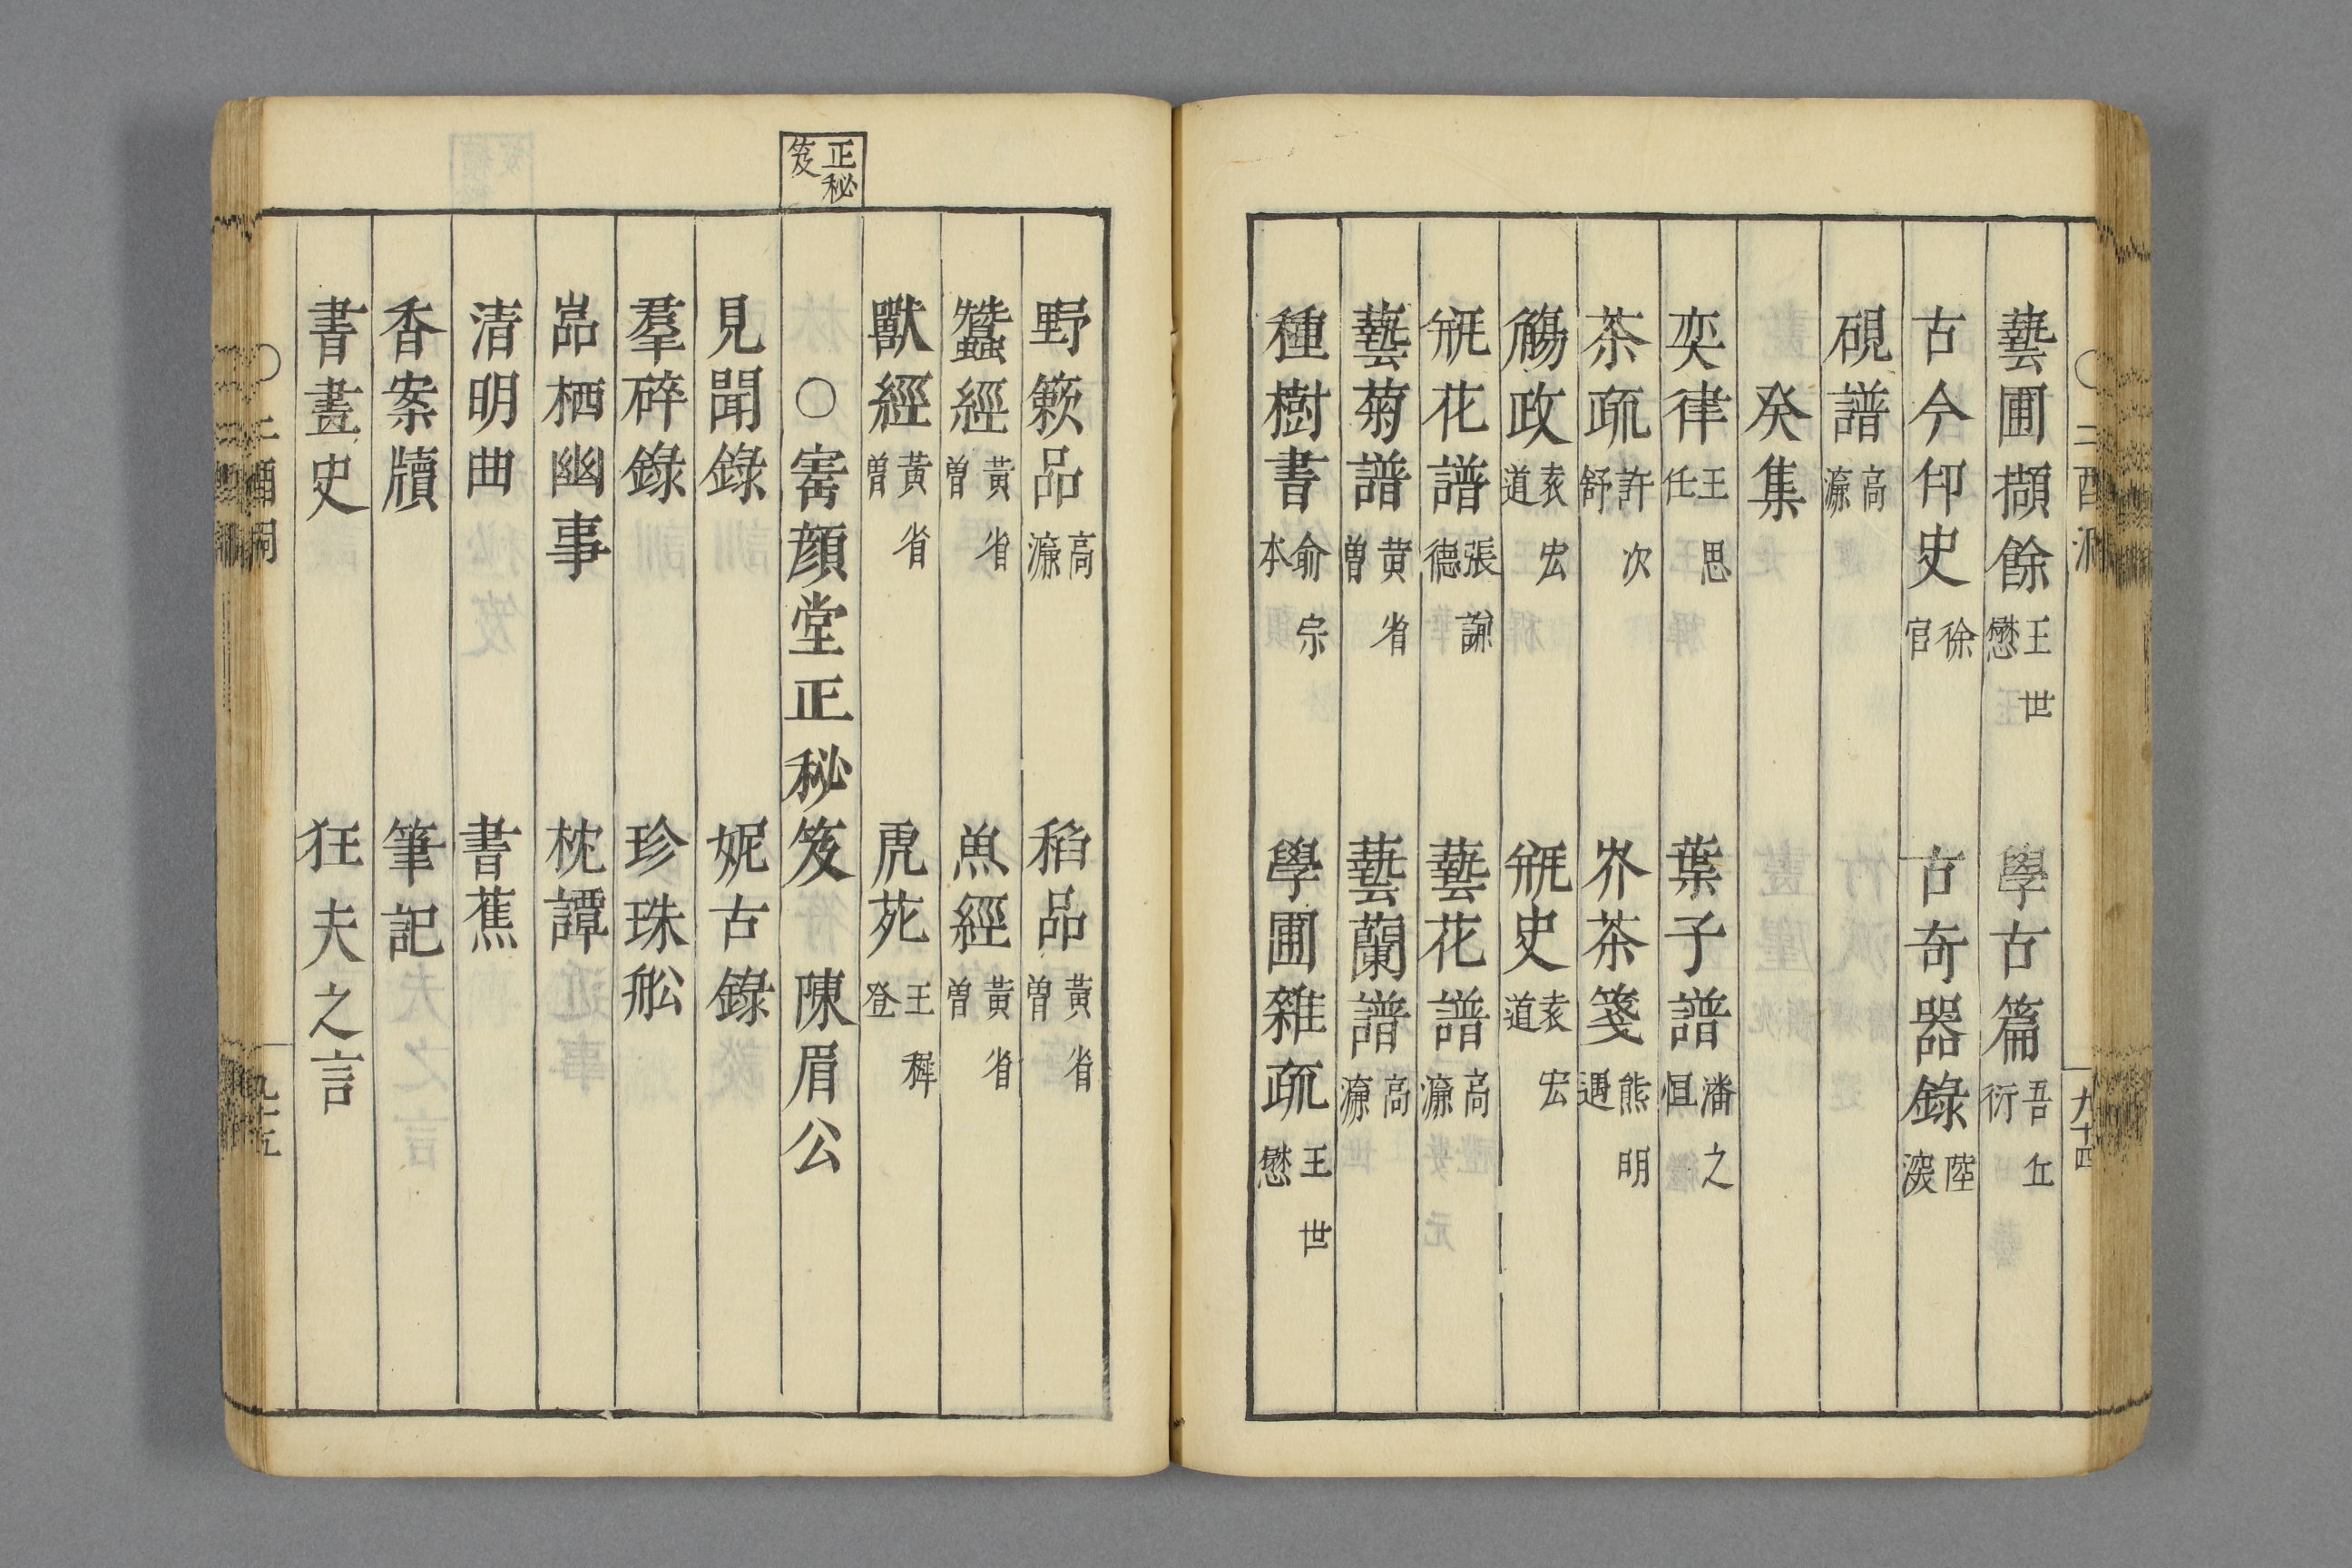 藝圃擷餘 王世懋 學古篇 吾丘衍
古今印史 徐官 古奇器錄 陸深
硯譜 高濂
癸集
奕律 王思任 葉子譜 潘之恒
茶疏 許次舒 岕茶箋 熊明遇
觴政 袁宏道 缾史 袁宏道
缾花譜 張謙德 藝花譜 高濂
藝菊譜 黃省曽 藝蘭譜 高濂
種樹書 俞宗本 學圃雜疏 王世懋
九十四
正秘笈
野簌品 高濂 稻品 黃省曽
蠶經 黃省曽 魚經 黃省曽
獸經 黃省曽 虎苑 王穉登
○寗顔堂正秘笈 陳眉公
見聞錄 妮古錄
羣碎錄 珍珠舩
嵓栖幽事 枕譚
清明曲 書蕉
香案牘 筆記
書畫史 狂夫之言
九十五